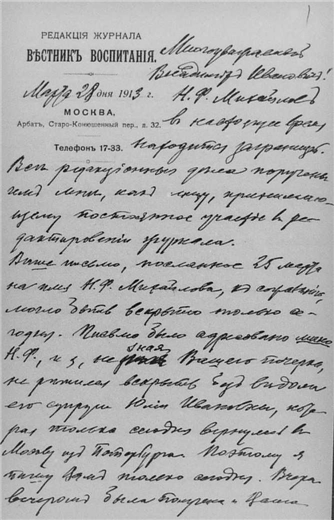 РЕДАКЦІЯ ЖУРНАЛА
ВѢСТНИК ВОСПИТАНІЯ.
Марта 28 дня 1913 г.
МОСКВА,
Арбатъ, Старо-Конюшенный пер., д. 32.
Телефон 17-33.
Многоуважаемый
Владиміръ Ивановичъ!
Н. Ф. Михайловъ
в настоящее время
находится заграницей.
Всѣ редакціонныя дѣла поручены
мнѣ, как лицу, принимаю-
щему постоянное участіе в ре-
дактировании журнала.
Ваше письмо, посланное 25 марта
на имя Н. Ф. Михайлова, к сожалѣнію
могло быть вскрыто только се-
годня. Письмо было адресовано лично
Н. Ф., и я, не зная Вашего почерка,
не рѣшился вскрыть без вѣдома
его супруги Юліи Ивановны, кото-
рая только сегодня вернулась в
Москву из Петербурга. Поэтому я
пишу Вам только сегодня. Вчера
вечером была получена и Ваша